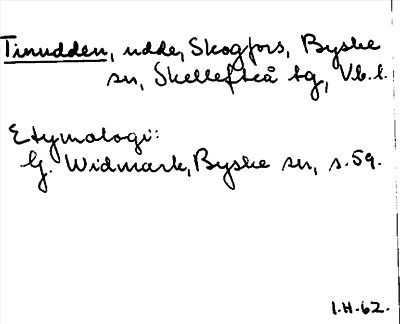 Tinudden, udde, Skogfors, Byske
sn, Skellefteå tg, Vb.l.
Etymologi:
G. Widmark, Byske sn, s. 59.
I.H.62.